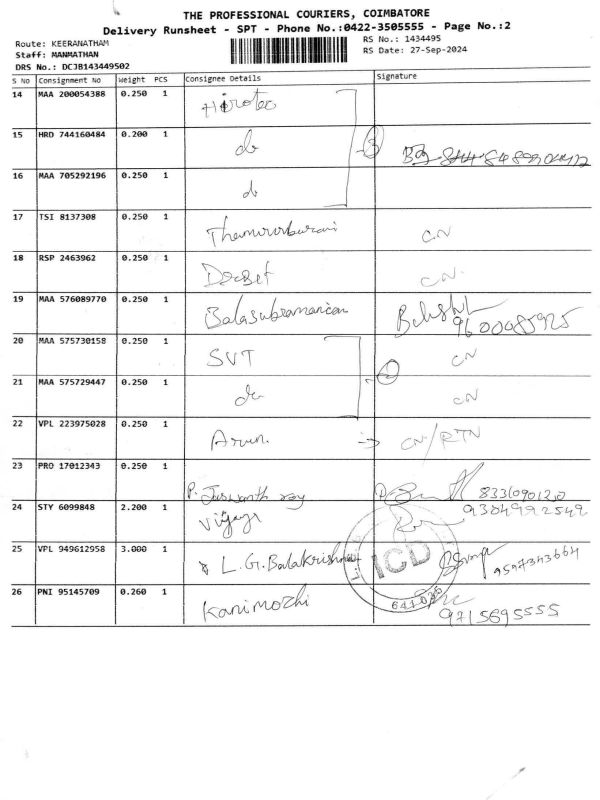 THE PROFESSIONAL COURIERS, COIMBATORE
Delivery Runsheet - SPT - Phone No.:0422-3505555 - Page No.:2
Route: KEERANATHAM
Staff: MANMATHAN
DRS No.: DCJB143449502
RS No.: 1434495
RS Date: 27-Sep-2024
S No Consignment No Weight PCS Consignee Details Signature
14 MAA 200054388 0.250 1 Hirotec
15 HRD 744160484 0.200 1 do
16 MAA 705292196 0.250 1 do
17 TSI 8137308 0.250 1 CN
18 RSP 2463962 0.250 1 CN
19 MAA 576089770 0.250 1 Balasubramanian 9600085925
20 MAA 575730158 0.250 1 SVT CN
21 MAA 575729447 0.250 1 do CN
22 VPL 223975028 0.250 1 Arun → CN/RTN
23 PRO 17012343 0.250 1 P. Jaswanth roy 8331090120
24 STY 6099848 2.200 1 Vijaya 9304992549
25 VPL 949612958 3.000 1 L.G. Balakrishnan 9597343664
ICD
641035
26 PNI 95145709 0.260 1 Kanimozhi 9715695555